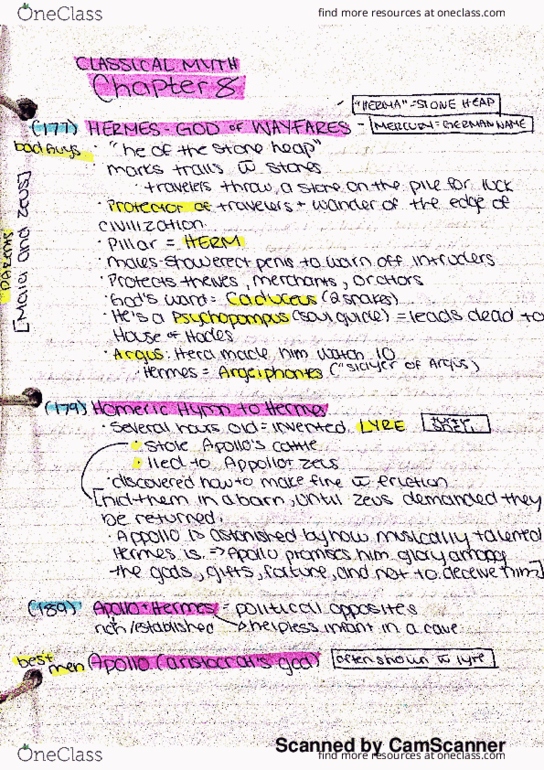 OneClass
find more resources at oneclass.com
CLASSICAL MYTH
Chapter 8
"HERMA"=STONE HEAP
(177) HERMES - GOD OF WAYFARES - MERCURY=GERMAN NAME
bad guys
• "he of the stone heap"
• marks trails w stones
• travelers throw a stone on the pile for luck
• Protector of travelers + wander of the edge of
civilization
• Pillar = HERM
• males-show erect penis to warn off intruders
• Protects theives, merchants, orators
• God's wand = Caduceus (2 snakes)
• He's a Psychopompus (soul guide) = leads dead to
House of Hades
• Argus: Hera made him watch IO
• Hermes = Argeiphontes ("slayer of Argus)
PARENTS
[Maia and Zeus]
(179) Homeric Hymn to Hermes
• Several hours old = invented LYRE
• Stole Apollo's cattle
• lied to Appollo + zeus
• discovered how to make fire w friction
[hid them in a barn, until zeus demanded they
be returned.
• Appollo is astonished by how musically talented
Hermes is. → Apollo promises him glory among
the gods, gifts, fortune, and not to deceive him]
(189) Apollo + Hermes = political opposites
rich/established helpless infant in a cave
best men Apollo (aristocrat's god) often shown w lyre
Scanned by CamScanner
OneClass
find more resources at oneclass.com